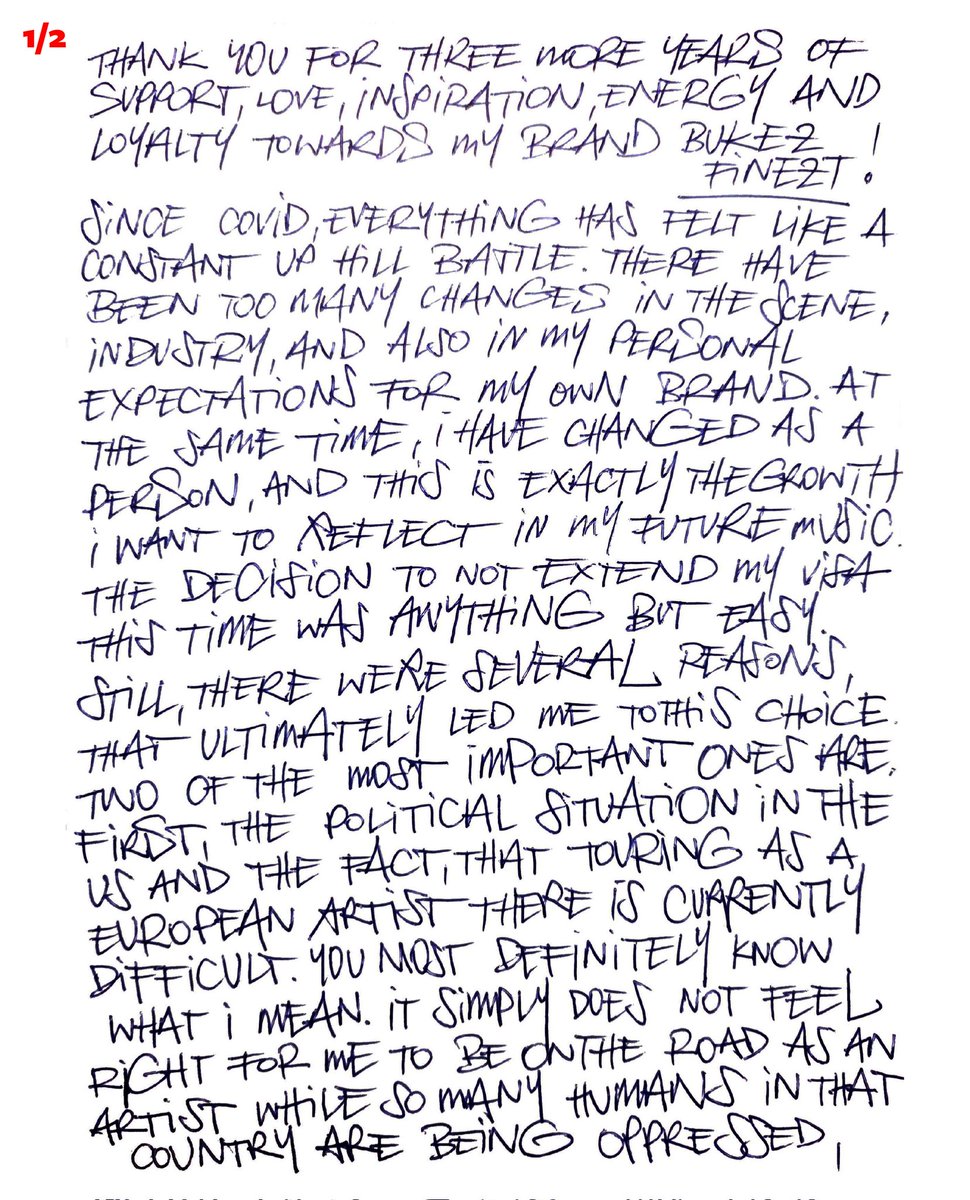 1/2
THANK YOU FOR THREE MORE YEARS OF
SUPPORT, LOVE, INSPIRATION, ENERGY AND
LOYALTY TOWARDS MY BRAND BUKEZ
FINEZT!
SINCE COVID, EVERYTHING HAS FELT LIKE A
CONSTANT UP HILL BATTLE. THERE HAVE
BEEN TOO MANY CHANGES IN THE SCENE,
INDUSTRY, AND ALSO IN MY PERSONAL
EXPECTATIONS FOR MY OWN BRAND. AT
THE SAME TIME, I HAVE CHANGED AS A
PERSON, AND THIS IS EXACTLY THE GROWTH
I WANT TO REFLECT IN MY FUTURE MUSIC.
THE DECISION TO NOT EXTEND MY VISA
THIS TIME WAS ANYTHING BUT EASY.
STILL, THERE WERE SEVERAL REASONS,
THAT ULTIMATELY LED ME TO THIS CHOICE.
TWO OF THE MOST IMPORTANT ONES ARE,
FIRST, THE POLITICAL SITUATION IN THE
US AND THE FACT, THAT TOURING AS A
EUROPEAN ARTIST THERE IS CURRENTLY
DIFFICULT. YOU MOST DEFINITELY KNOW
WHAT I MEAN. IT SIMPLY DOES NOT FEEL
RIGHT FOR ME TO BE ON THE ROAD AS AN
ARTIST WHILE SO MANY HUMANS IN THAT
COUNTRY ARE BEING OPPRESSED,